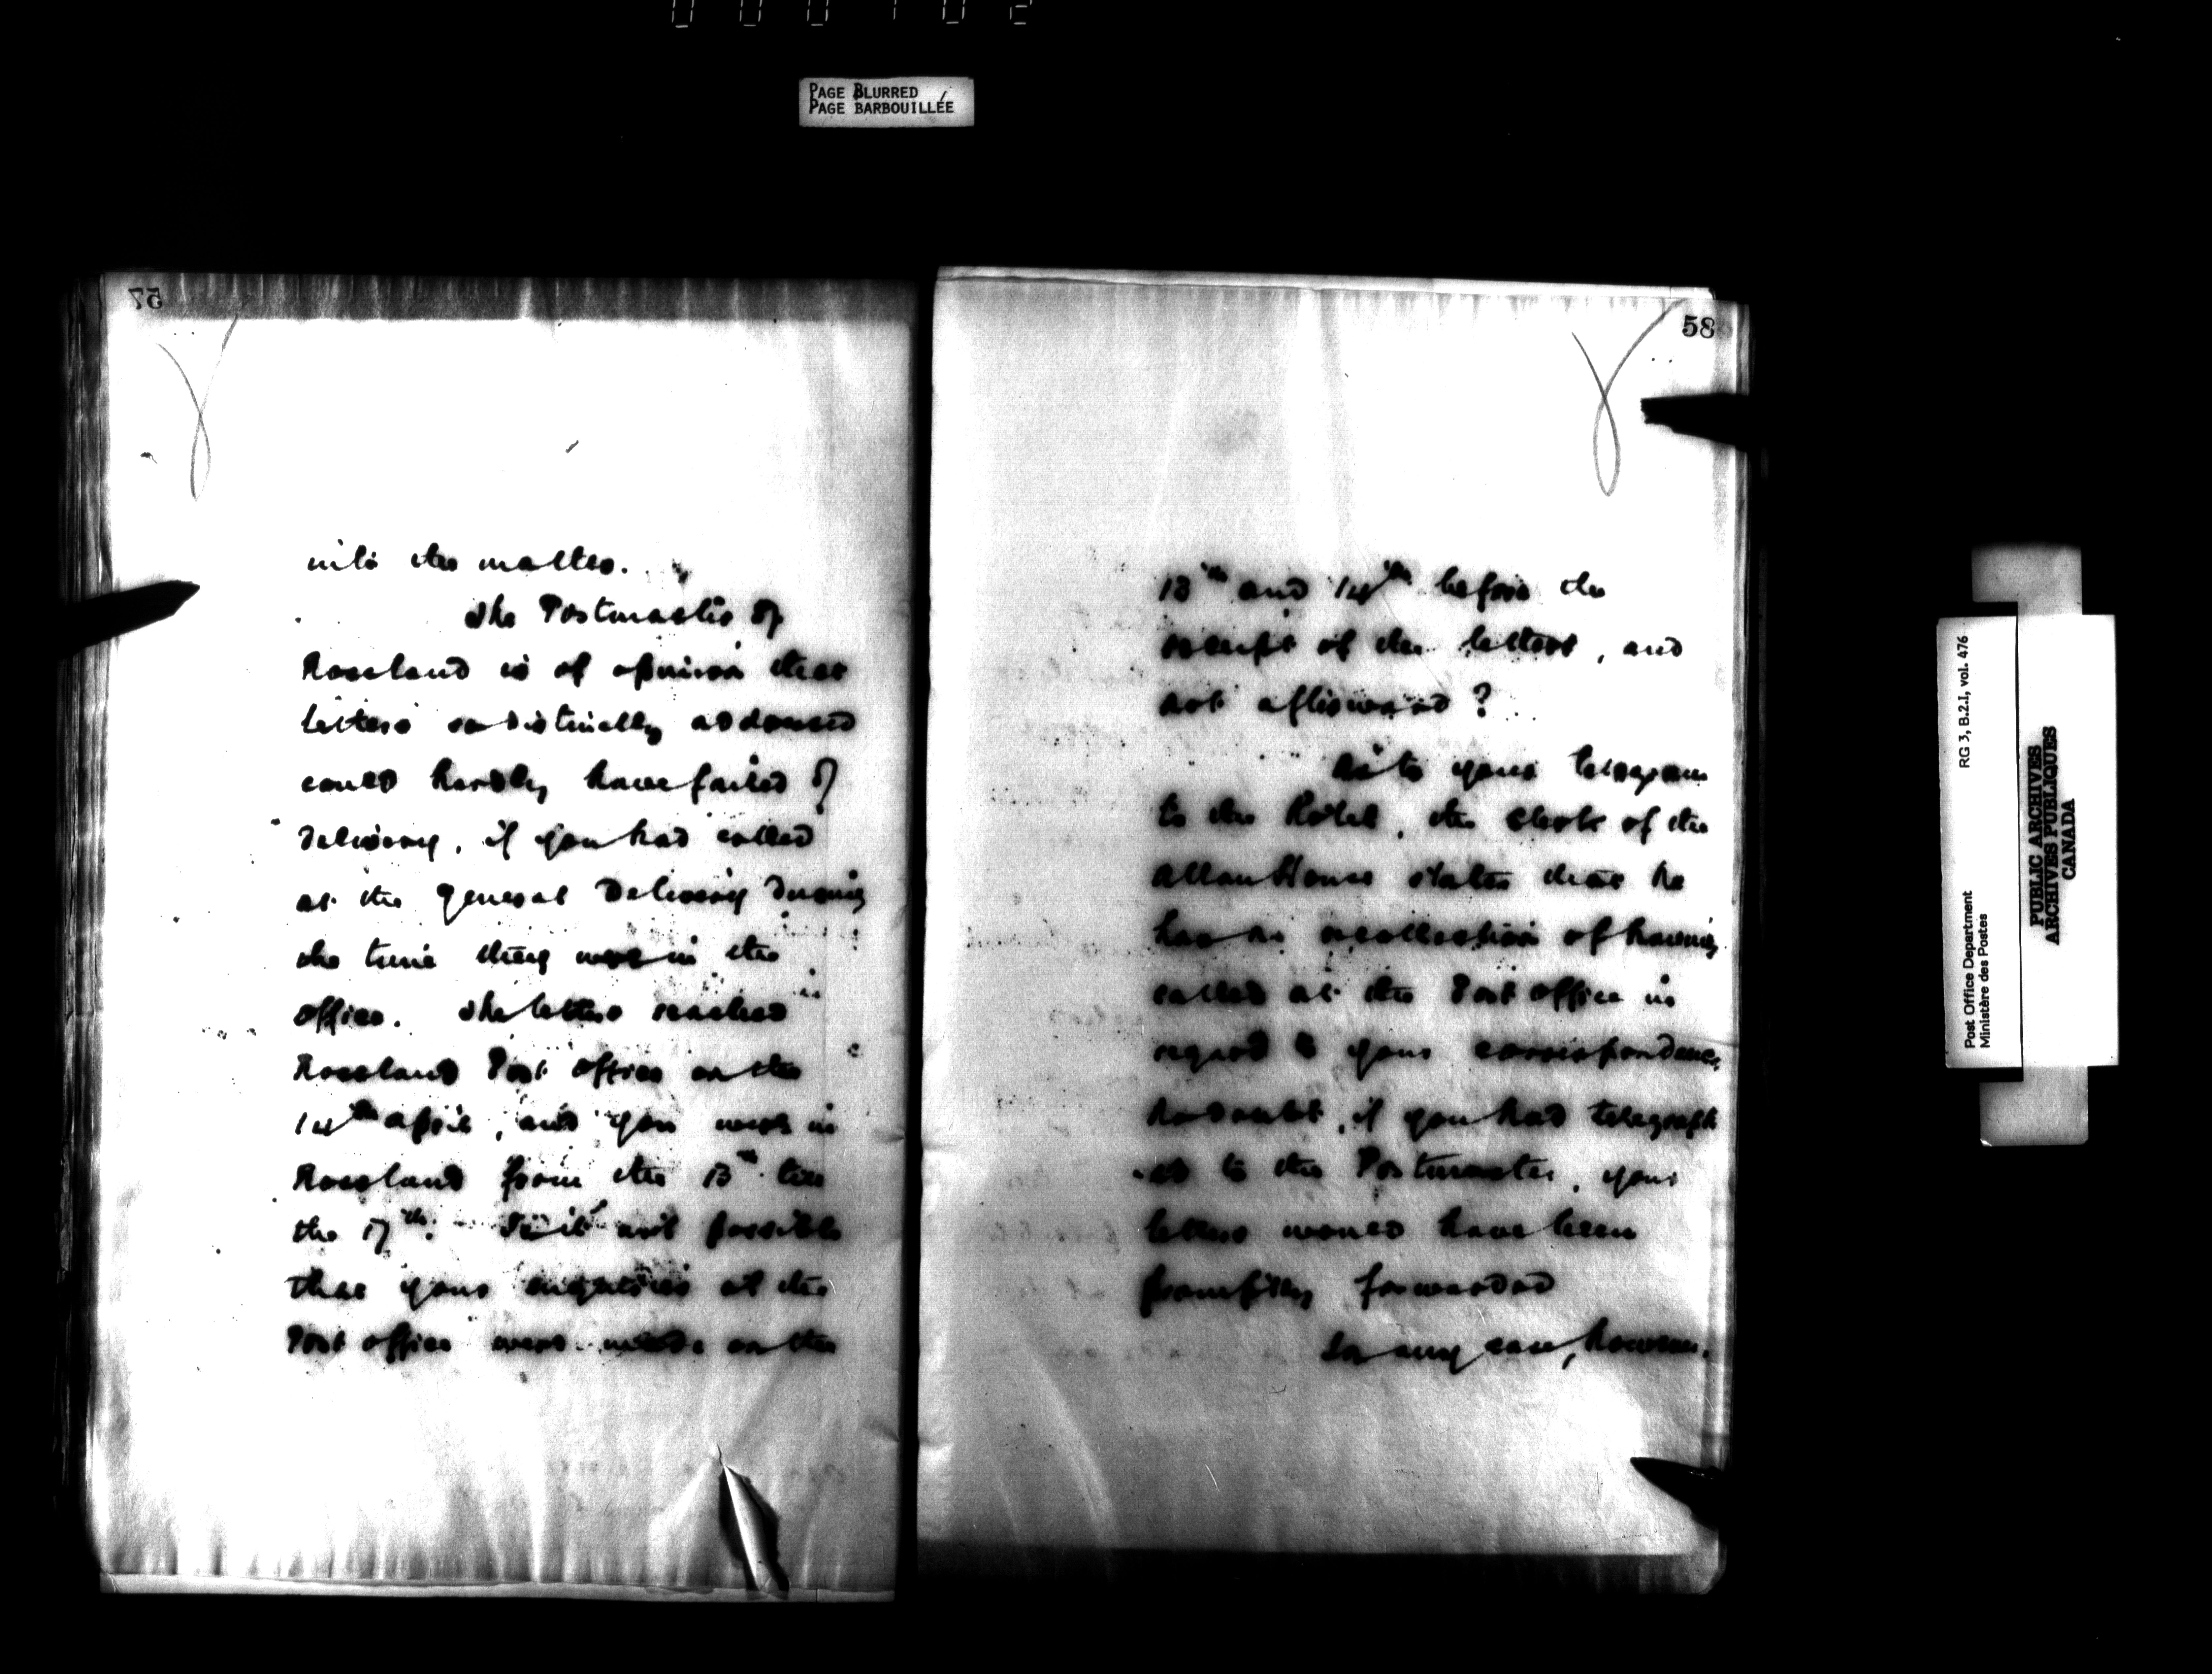 PAGE BLURRED
PAGE BARBOUILLÉE
57
into the matter.
The Postmaster of
Rossland is of opinion that
letters so distinctly addressed
could hardly have failed of
delivery, if you had called
at the General Delivery during
the time they were in the
office. The letters reached
Rossland Post Office on the
14th April, and you were in
Rossland from the 13th till
the 17th. Is it not possible
that your enquiries at the
Post office were made on the
58
13th and 14th before the
receipt of the letters, and
not afterward?
As to your telegram
to the Hotel, the clerk of the
Allan House states that he
has no recollection of having
called at the Post office in
regard to your correspondence.
No doubt, if you had telegraph
ed to the Postmaster, your
letters would have been
promptly forwarded
In any case, however,
RG 3, B.2.I, vol. 476
Post Office Department
Ministère des Postes
PUBLIC ARCHIVES
ARCHIVES PUBLIQUES
CANADA